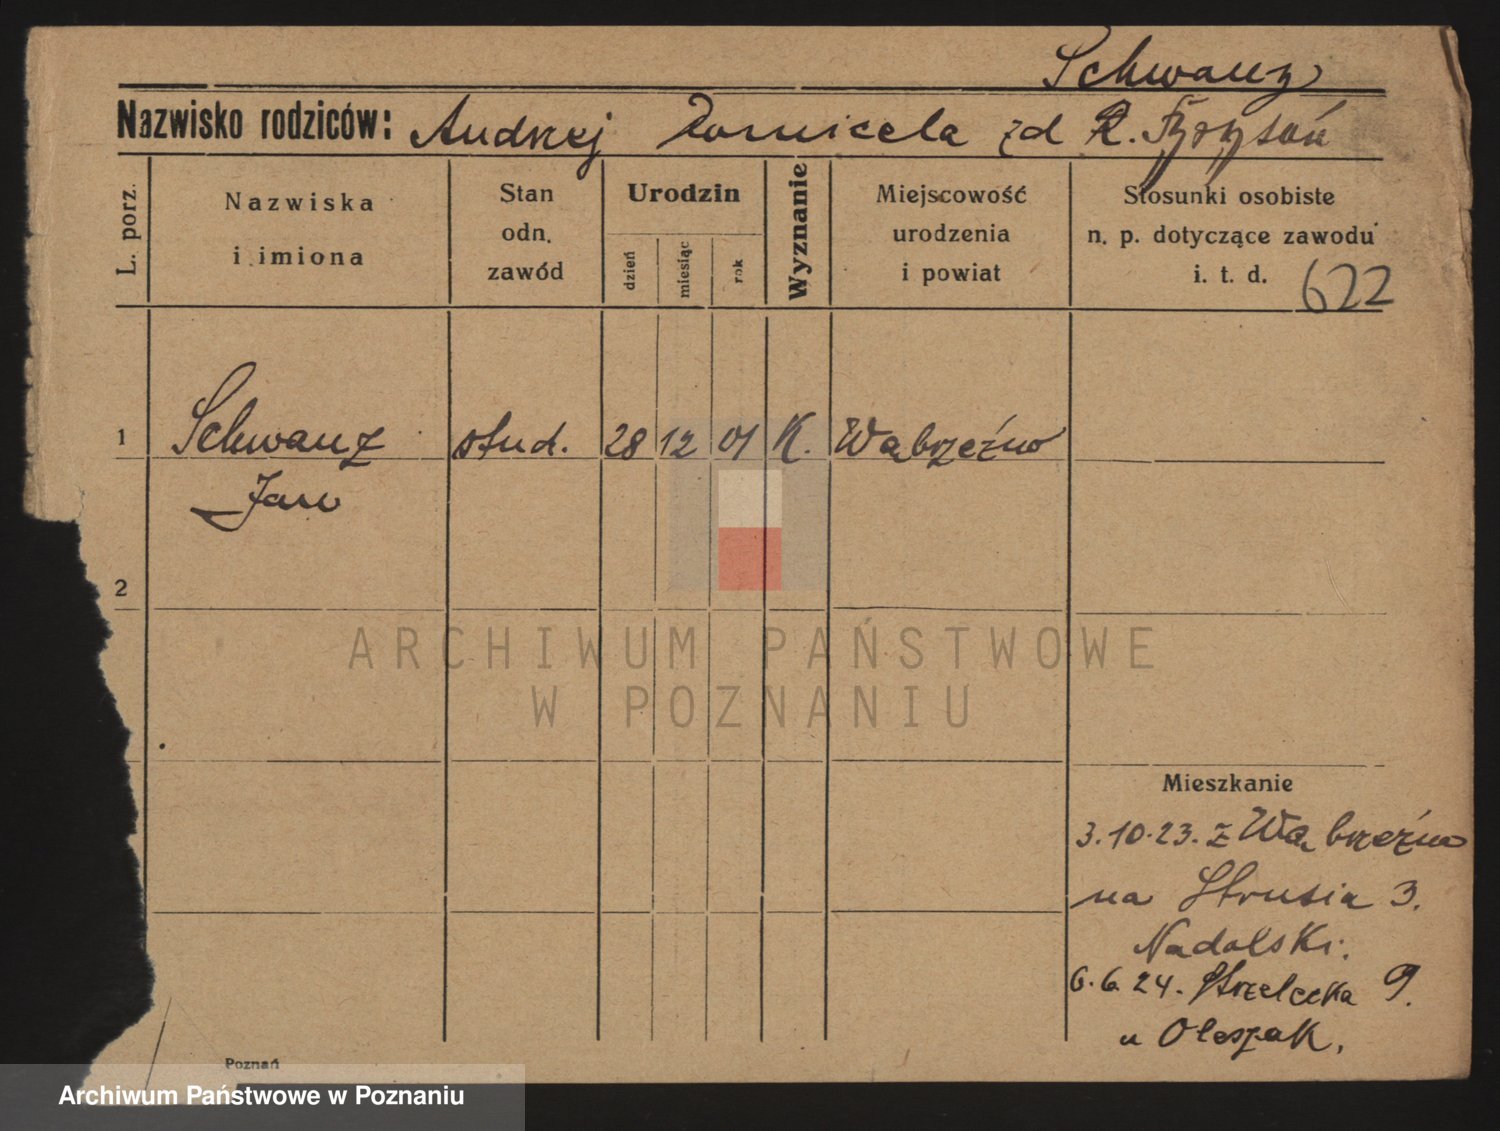 Schwanz
Nazwisko rodziców: Andrzej Domicela zd
L. porz.
Nazwiska
i imiona
Stan
odn.
zawód
Urodzin
dzień
miesiąc
rok
Wyznanie
Miejscowość
urodzenia
i powiat
Stosunki osobiste
n. p. dotyczące zawodu
i. t. d.
622
1 Schwanz stud. 28 12 01 K. Wąbrzeźno
Jan
2
ARCHIWUM PAŃSTWOWE
W POZNANIU
Mieszkanie
3.10.23. z Wąbrzeźno
na Strusia 3.
Nadolski.
6.6.24. Strzelecka 9.
u Oleszak.
Poznań
Archiwum Państwowe w Poznaniu